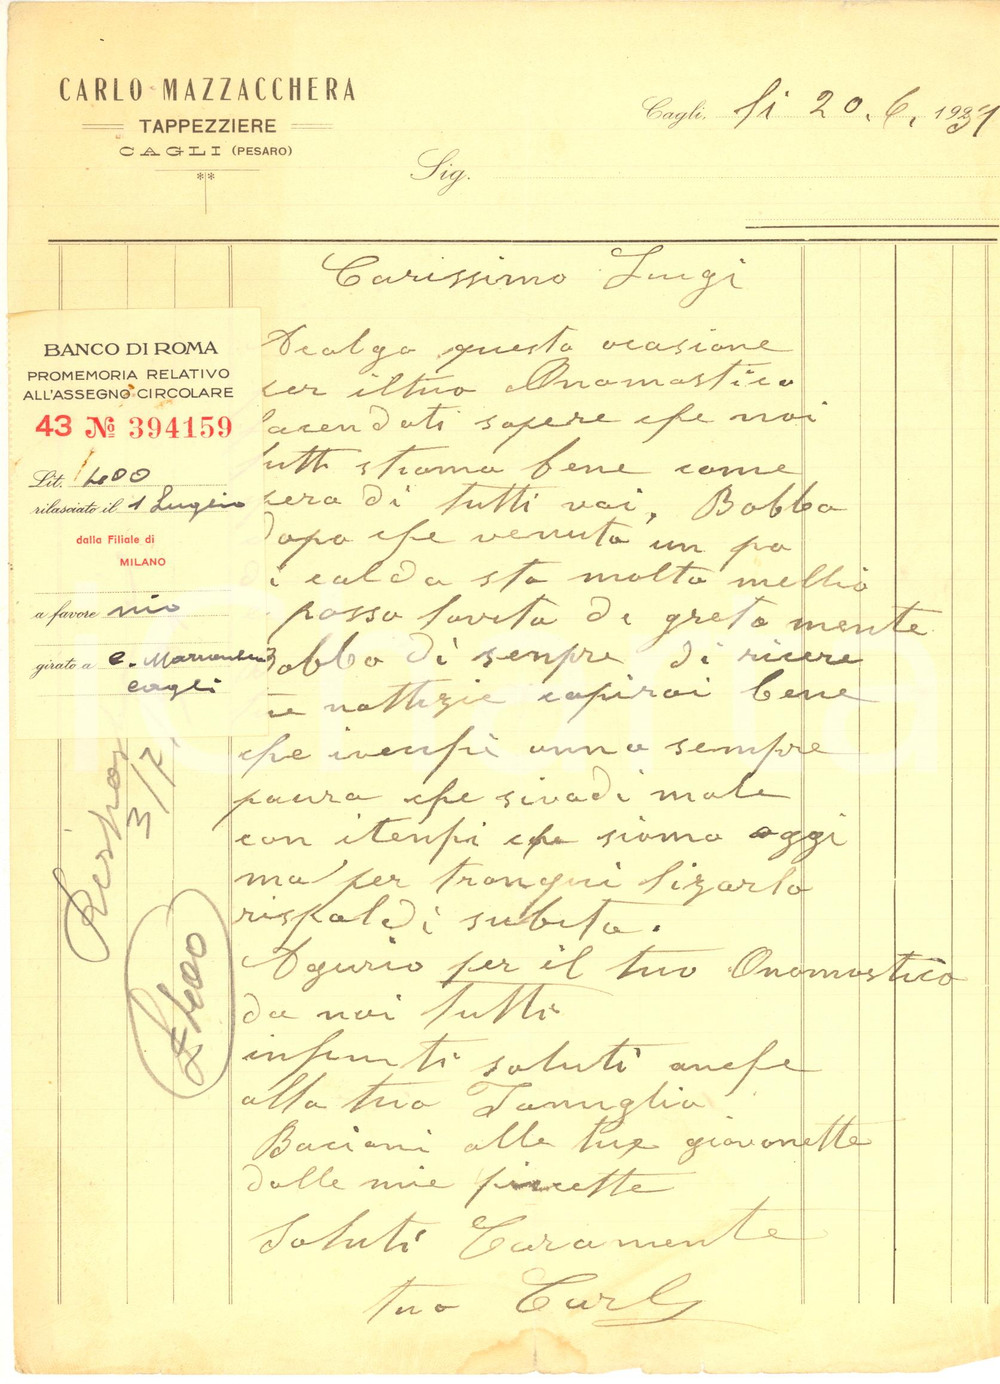 CARLO MAZZACCHERA
TAPPEZZIERE
CAGLI (PESARO)
Cagli, li 20. 6. 1937
Sig.
Carissimo Luigi
questa ocasione
per iltuo Onomastico
facendoti sapere che noi
tutti stiamo bene come
spero di tutti voi, Babbo
dopo che venuto un po
di caldo sta molto mellio
posso
Babbo dì senpre di ricere
tue nottizie capirai bene
che ivechi anno sempre
paura che sivadi male
con itenpi che siamo oggi
ma per tranqui lizarlo
rispoldi subito.
Agurio per il tuo Onomastico
da noi tutti
infiniti saluti anche
alla tua Famiglia
Baciani alle tue giovonette
dalle mie
Saluti Caramente
tuo Carlo
BANCO DI ROMA
PROMEMORIA RELATIVO
ALL'ASSEGNO CIRCOLARE
43 № 394159
Lit. 400
rilasciato il 1 Luglio
dalla Filiale di
MILANO
a favore mio
girato a C.
Cagli
3/7.
£ 400